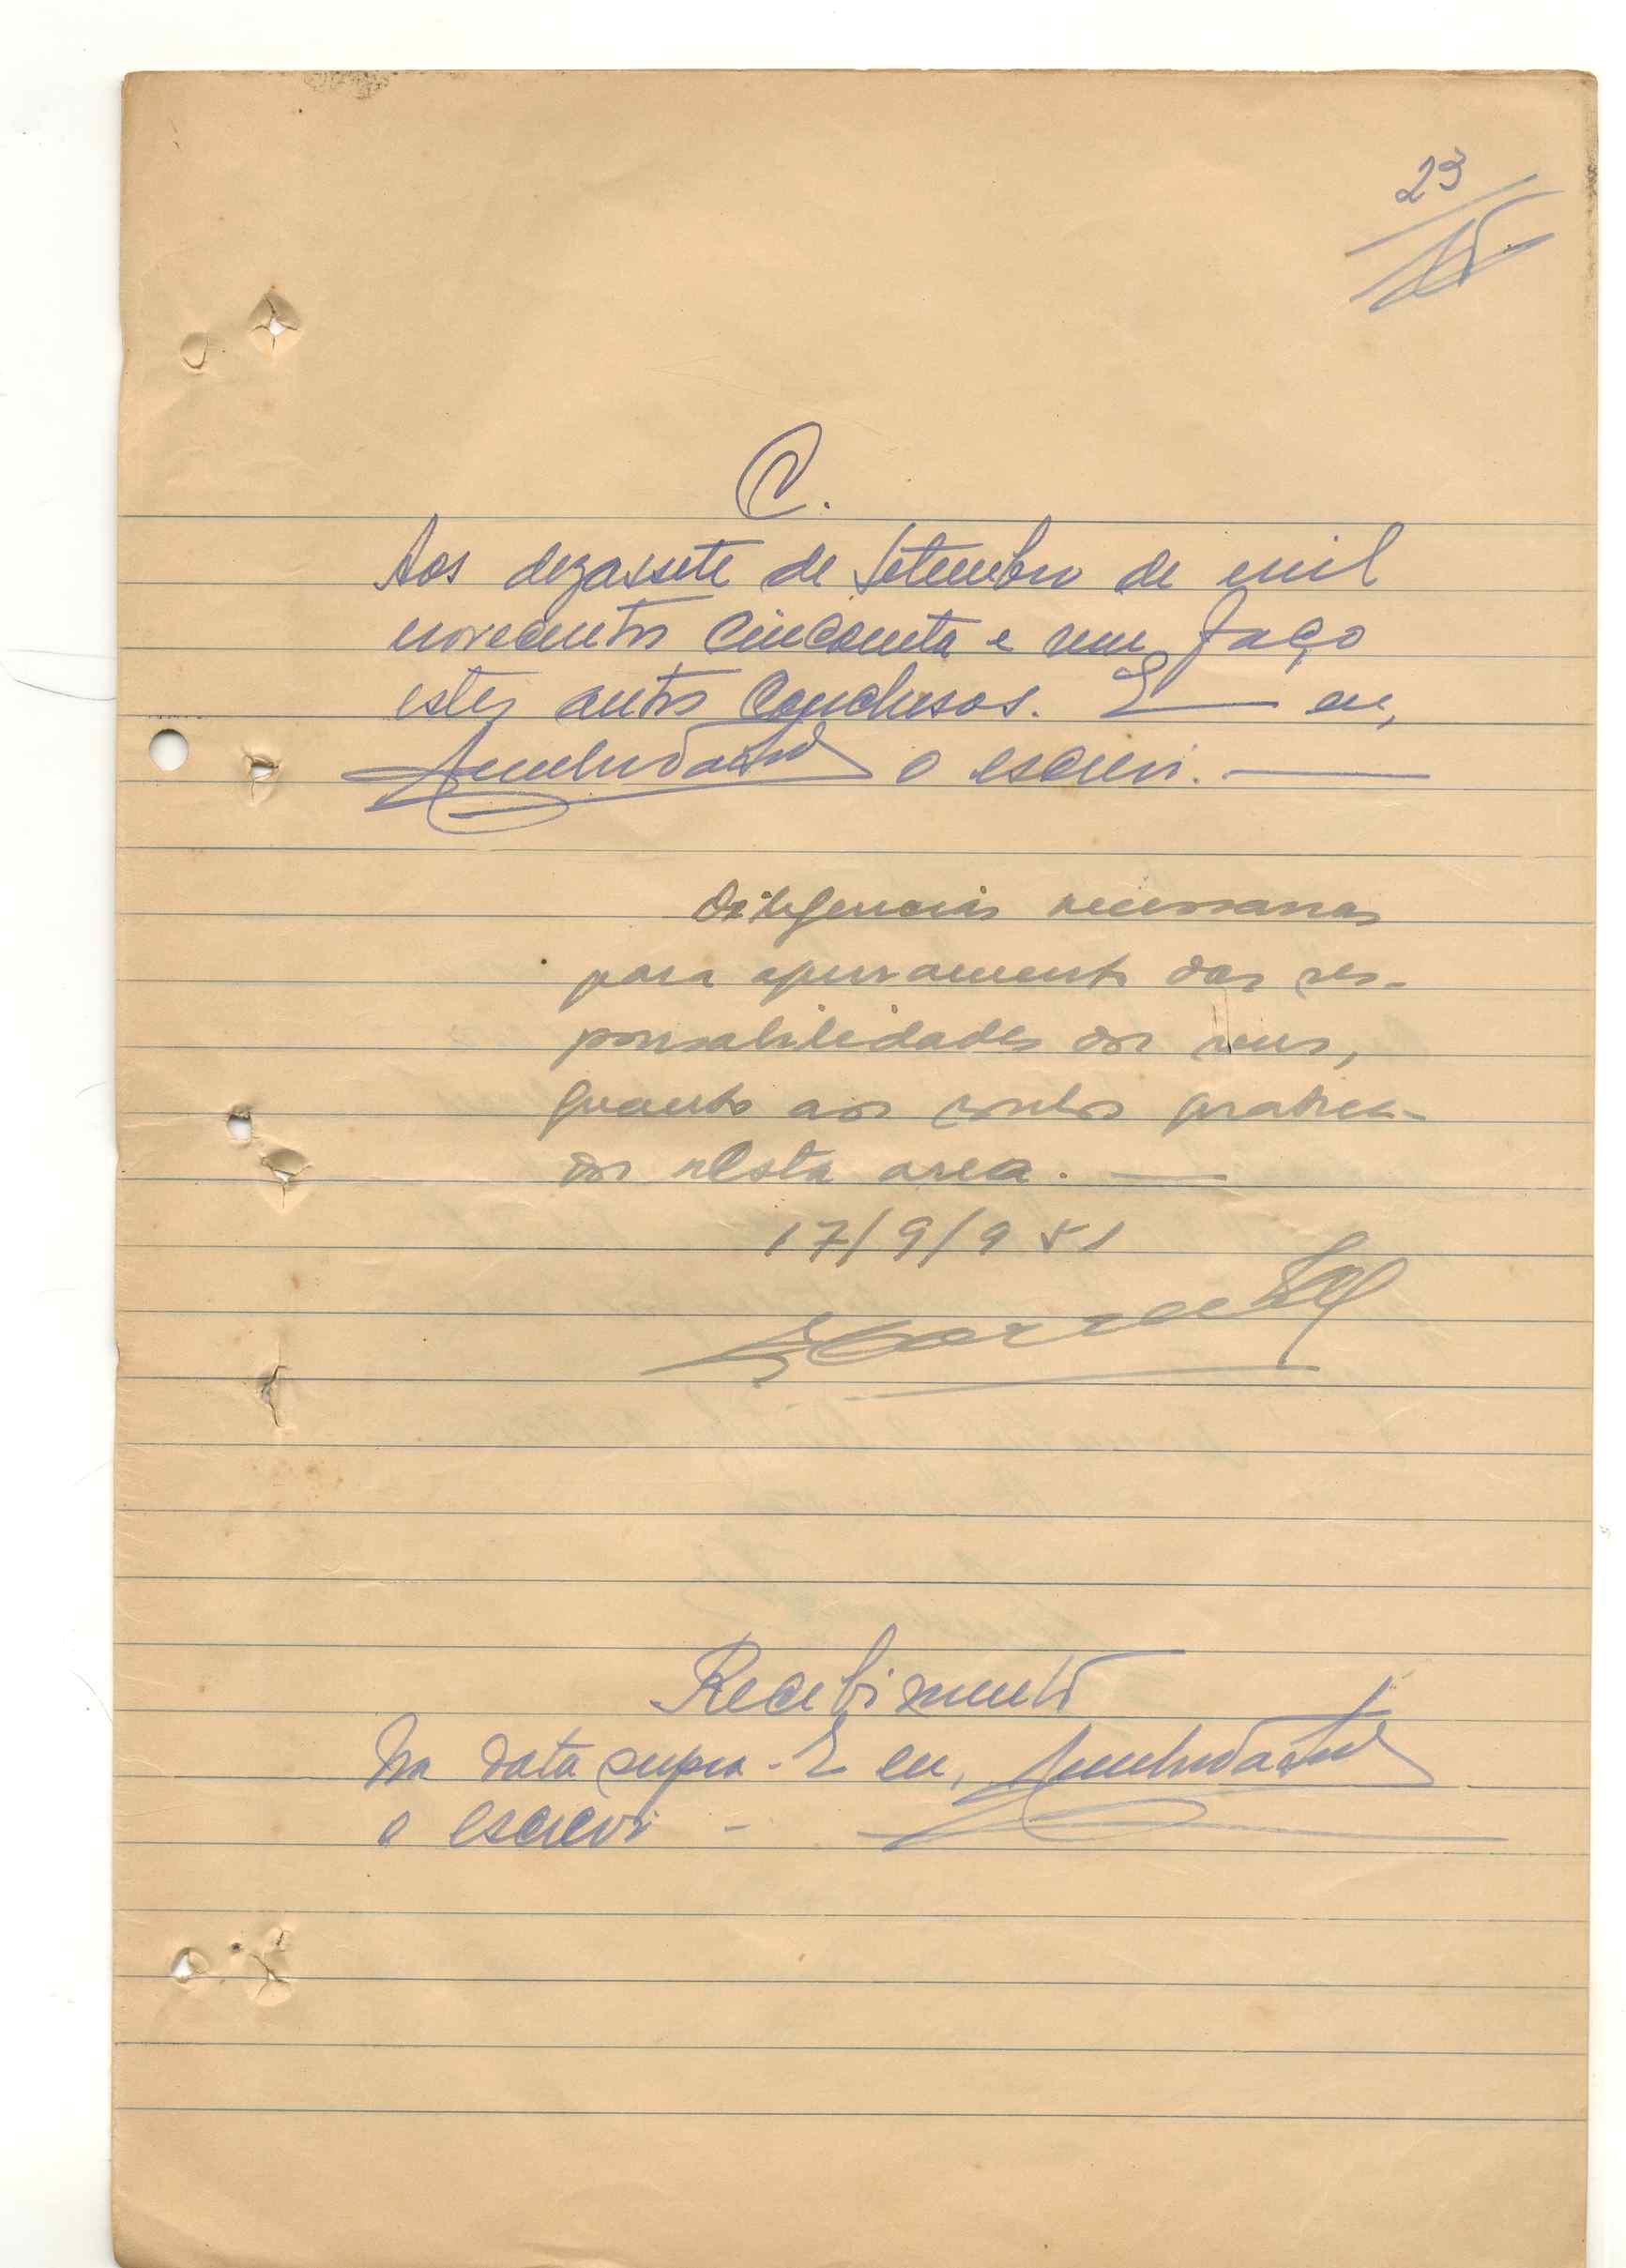 23
C.
Aos dezassete de Setembro de mil
novecentos cincoenta e um faço
estes autos conclusos. E eu,
o escrevi.
Diligencias necessarias
para apuramento das res-
ponsabilidades dos reus,
quanto aos roubos pratica-
dos nesta area.
17/9/951
Recebimento
Na data supra - E eu,
o escrevi -